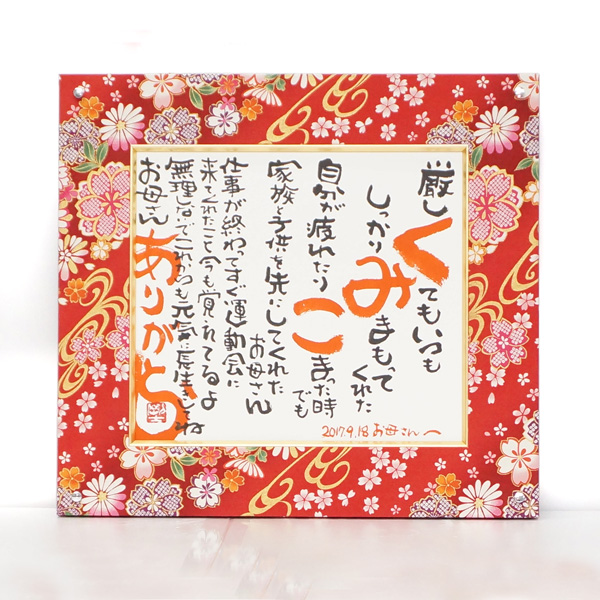 厳しくてもいつも
しっかりみまもってくれた
自分が疲れたりこまった時でも
家族と子供を先にしてくれたお母さん
仕事が終わってすぐ運動会に
来てくれたこと今も覚れてるよ
無理しないでこれからも元気に長生きしてね
お母さんありがとう
2017.9.18 お母さんへ